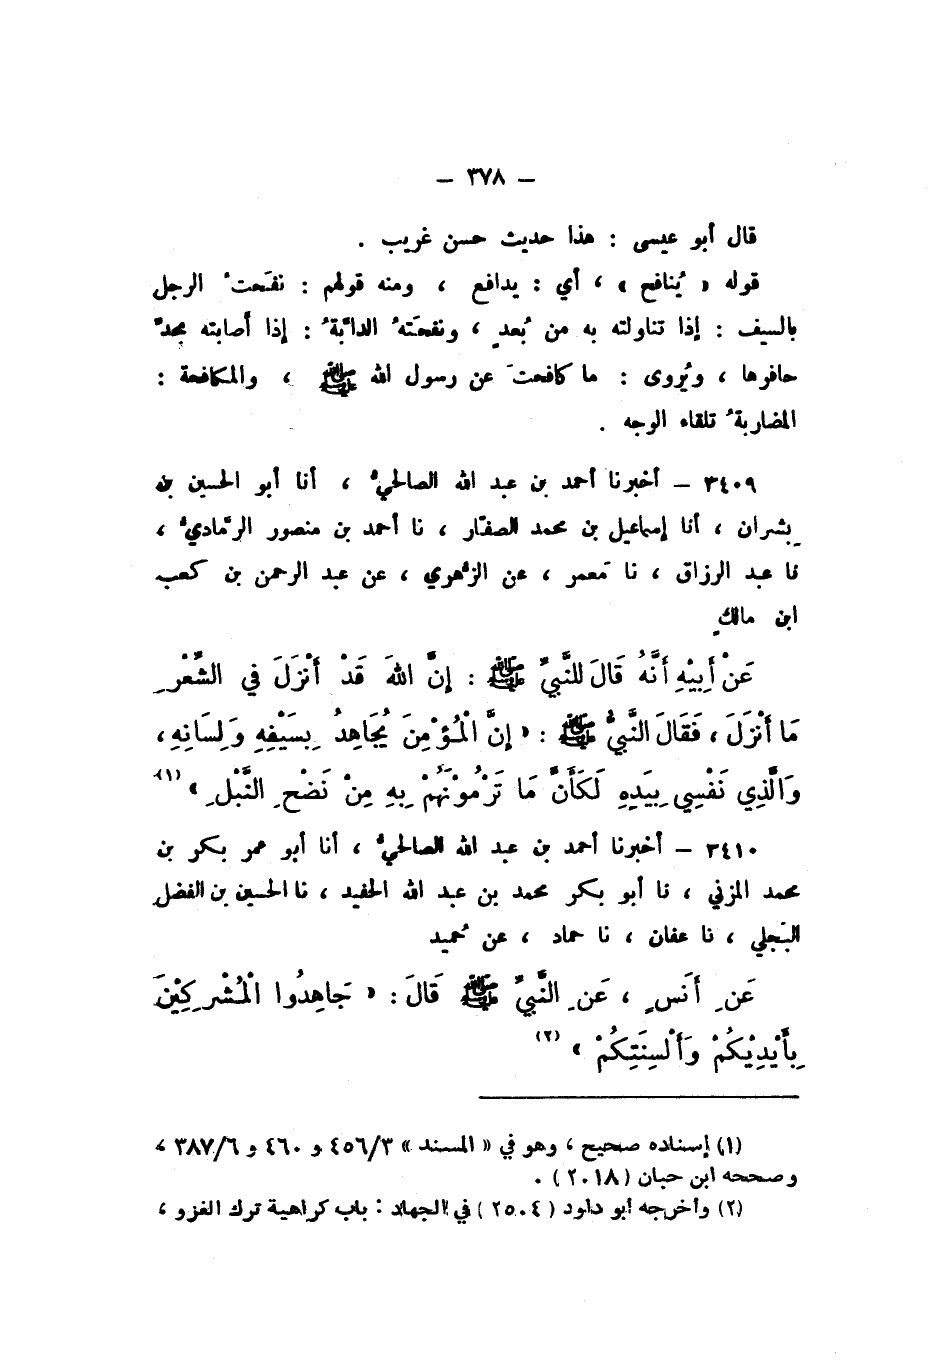 – ٣٧٨ –
قال أبو عيسى : هذا حديث حسن غريب .
قوله « يُنافح » ، أي : يدافع ، ومنه قولهم : نفَحتُ الرجل
بالسيف : إذا تناولته به من بُعدٍ ، ونفحَتهُ الدابّةُ : إذا أصابته بحدّ
حافرها ، ويُروى : ما كافحتَ عن رسول الله ﷺ ، والمكافحة :
المضاربةُ تلقاء الوجه .
٣٤٠٩ – أخبرنا أحمد بن عبد الله الصالحيُّ ، أنا أبو الحسين بن
بِشران ، أنا إسماعيل بن محمد الصفّار ، نا أحمد بن منصور الرّماديُّ ،
نا عبد الرزاق ، نا مَعمر ، عن الزُّهري ، عن عبد الرحمن بن كعب
ابن مالكٍ
عَنْ أَبِيْهِ أَنَّهُ قَالَ لِلنَّبيِّ ﷺ : إنَّ اللهَ قَدْ أَنْزَلَ في الشِّعْرِ
مَا أَنْزَلَ ، فَقَالَ النَّبيُّ ﷺ : « إنَّ الْمُؤْمِنَ يُجَاهِدُ بِسَيْفِهِ وَلِسَانِهِ ،
وَالَّذِي نَفْسِي بِيَدِهِ لَكَأَنَّ مَا تَرْمُوْنَهُمْ بِهِ مِنْ نَضْحِ النَّبْلِ » (١)
٣٤١٠ – أخبرنا أحمد بن عبد الله الصالحيُّ ، أنا أبو عمر بكر بن
محمد المزني ، نا أبو بكر محمد بن عبد الله الحفيد ، نا الحسين بن الفضل
البَجلي ، نا عفان ، نا حماد ، عن حُميد
عَنِ أَنَسٍ ، عَنِ النَّبيِّ ﷺ قَالَ : « جَاهِدُوا الْمُشْرِكِيْنَ
بِأَيْدِيْكُمْ وَأَلْسِنَتِكُمْ » (٢)
(١) إسناده صحيح ، وهو في « المسند » ٤٥٦/٣ و ٤٦٠ و ٣٨٧/٦ ،
وصححه ابن حبان ( ٢٠١٨ ) .
(٢) وأخرجه أبو داود ( ٢٥٠٤ ) في الجهاد : باب كراهية ترك الغزو ،